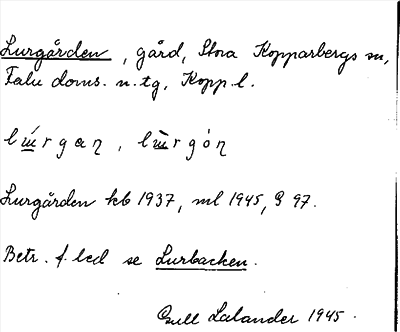 Lurgården, gård, Stora Kopparbergs sn,
Falu doms. n. tg, Kopp l.
Lurgården kb 1937, ml 1945, G 97.
Betr. f. led se Lurbacken.
Gull Lalander 1945.